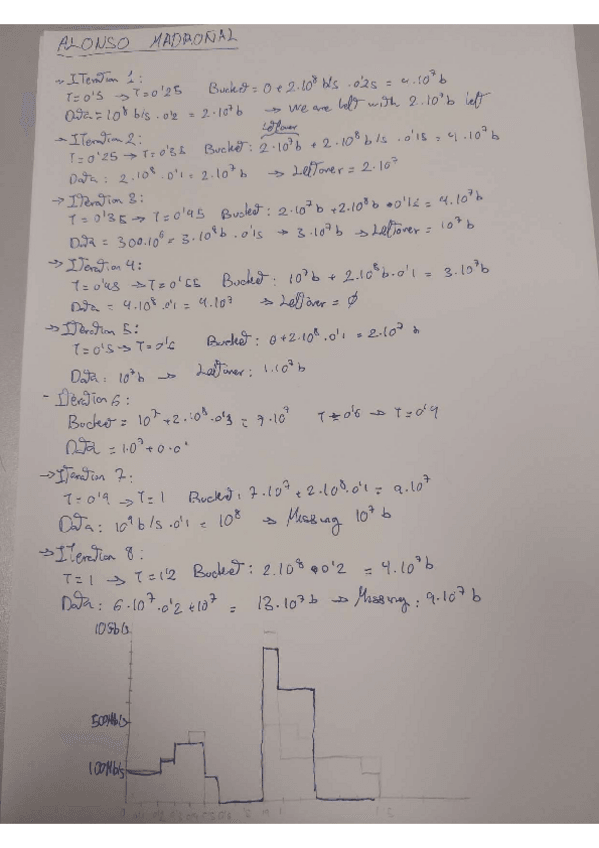 ALONSO MADROÑAL
→ ITeration 1:
T=0'5 → T=0'25 Bucket = 0 + 2·10⁸ b/s · 0'25 = 4·10⁷b
Data = 10⁸ b/s · 0'2 = 2·10⁷b → We are left with 2·10⁷b left
→ ITeration 2:
Leftover
T=0'25 → T=0'35 Bucket: 2·10⁷b + 2·10⁸ b/s · 0'15 = 4·10⁷b
Data: 2·10⁸ · 0'1 = 2·10⁷b → Leftover = 2·10⁷
→ ITeration 3:
T=0'35 → T=0'45 Bucket: 2·10⁷b + 2·10⁸b · 0'1 = 4·10⁷b
Data = 300·10⁶ = 3·10⁸b · 0'15 → 3·10⁷b → Leftover = 10⁷b
→ ITeration 4:
T=0'45 → T=0'55 Bucket: 10⁷b + 2·10⁸b · 0'1 = 3·10⁷b
Data = 4·10⁸ · 0'1 = 4·10⁷ → Leftover = ∅
→ ITeration 5:
T=0'5 → T=0'6 Bucket: 0 + 2·10⁸ · 0'1 = 2·10⁷ b
Data: 10⁷b → Leftover: 1·10⁷b
- ITeration 6:
Bucket = 10⁷ + 2·10⁸ · 0'3 = 7·10⁷ T=0'6 → T=0'9
Data = 1·0⁷ + 0·0⁸
→ ITeration 7:
T=0'9 → T=1 Bucket: 7·10⁷ + 2·10⁸ · 0'1 = 9·10⁷
Data: 10⁹ b/s · 0'1 = 10⁸ → Missing 10⁷b
→ ITeration 8:
T=1 → T=1'2 Bucket: 2·10⁸ · 0'2 = 4·10⁷b
Data: 6·10⁷ · 0'2 + 10⁷ = 13·10⁷b → Missing: 9·10⁷b
500Mb/s
100Mb/s